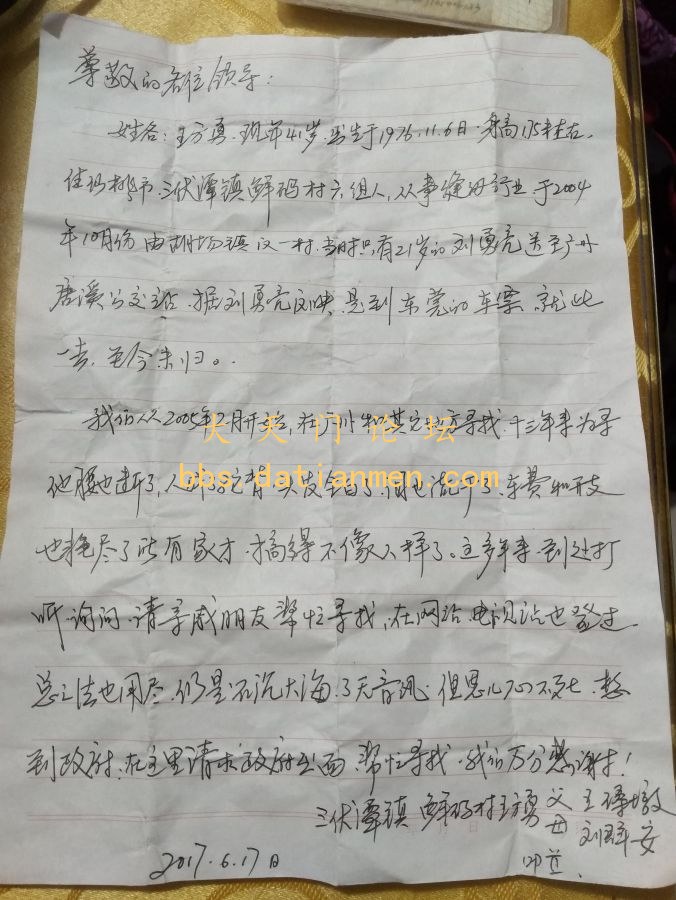 尊敬的各位领导：
姓名：王方勇.现年41岁.出生于1976.11.6日.身高1.75米左右.
住仙桃市.三伏潭镇鲜码村六组人，从事缝纫行业于2004
年10月份由胡场镇汉一村.当时只有21岁的刘勇亮送至广州
唐溪公交站.据刘勇亮反映.是到东莞的车票.就此
一去.至今未归。
我们从2005年2月开始，在广州和其它地方寻找.十三年来为寻
他腿也断了，人背头发全白了，泪也流干了.车费和开支
也挽尽了所有家才.搞得不像人样了.这多年来.到处打
听.询问.请亲戚朋友帮忙寻找，在网站.电视站也登过
总之法也用尽.仍是石沉大海！了无音讯.但思儿心不死.想
到政府.在这里请求政府出面.帮忙寻找.我们万分感谢！
三伏潭镇鲜码村王方勇父王
母刘
叩首.
2017.6.17日
大天门论坛
bbs.datianmen.com